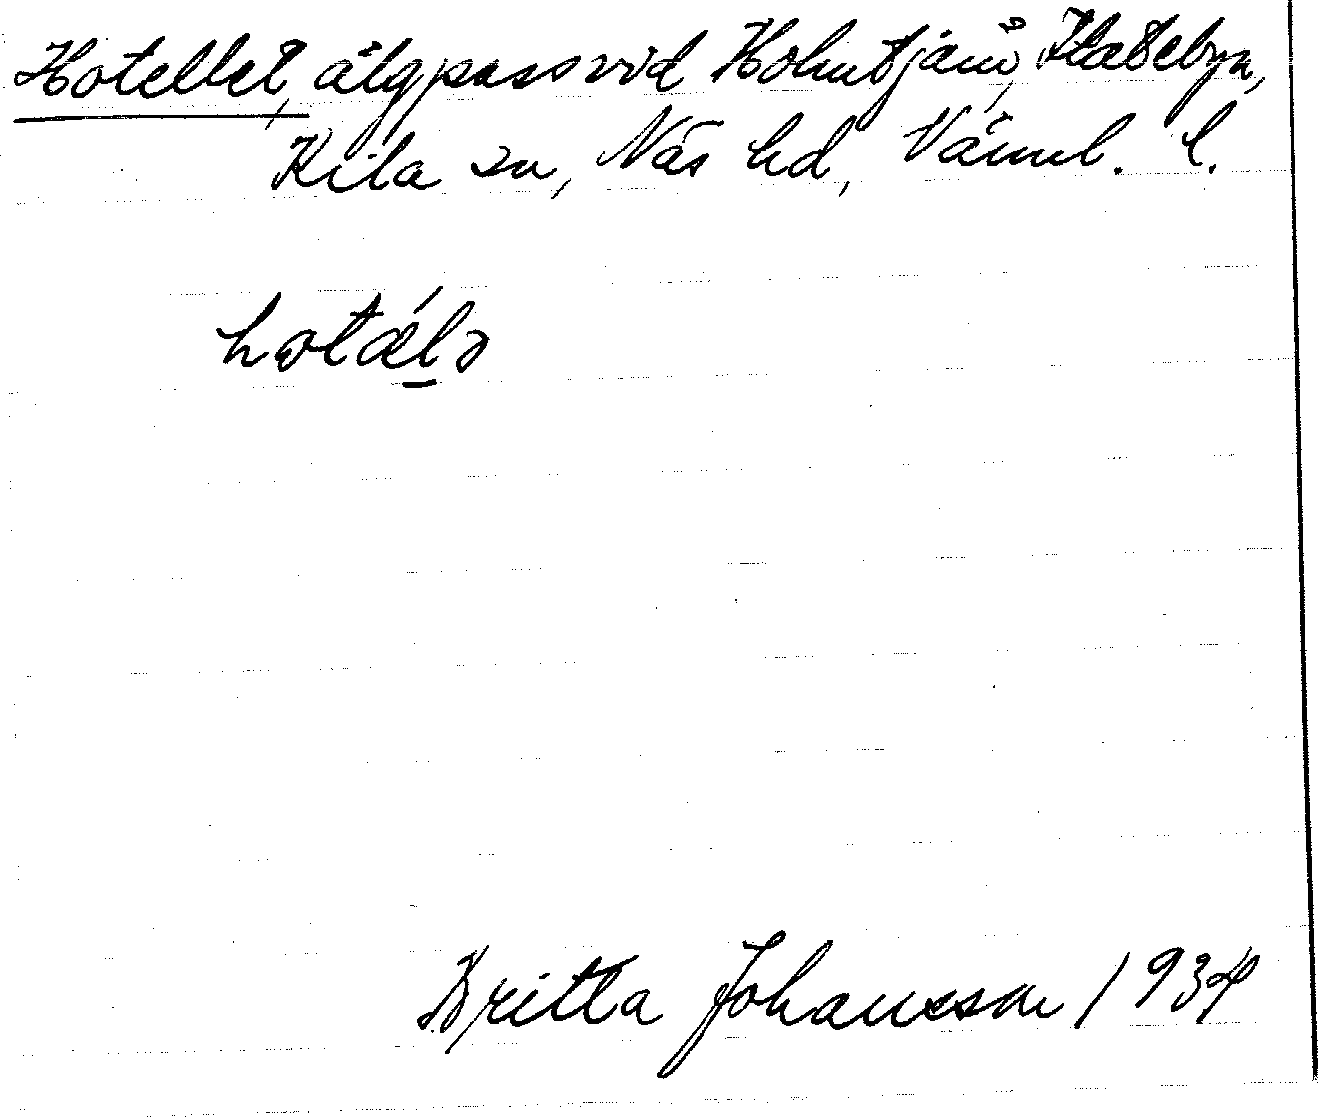 Hotellet, älgpass vid Holmtjärn,
Kila sn, Näs hd, Värml. l.
hotælə
Britta Johansson 1934